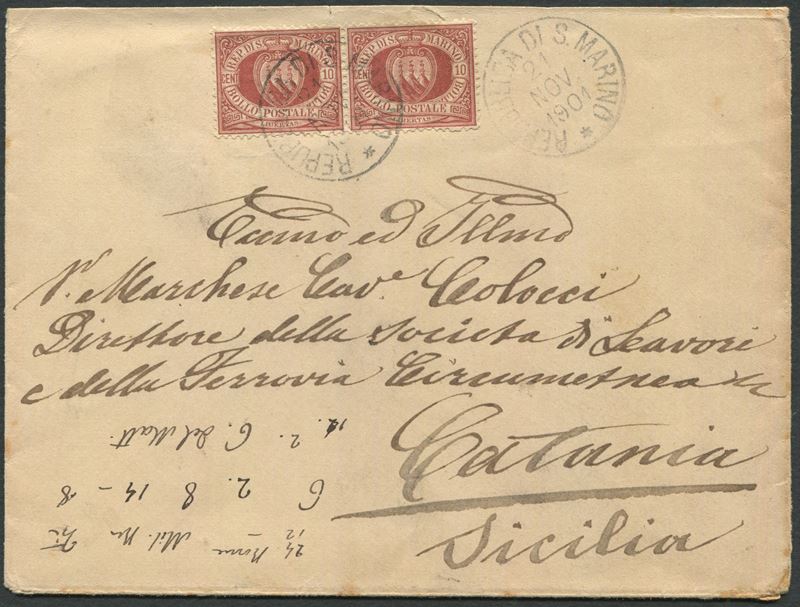 REP. DI S. MARINO
CENT. 10
BOLLO POSTALE
LIBERTAS
REP. DI S. MARINO
CENT. 10
BOLLO POSTALE
LIBERTAS
REPUBBLICA DI S. MARINO
21
NOV
1901
ed Illmo
Sr. Marchese Cave. Colocci
Direttore della Societa di Lavori
e della Ferrovia Circumetnea
Catania
Sicilia
2. 6. del Matt.
6 2. 8 14 - 8
24
12